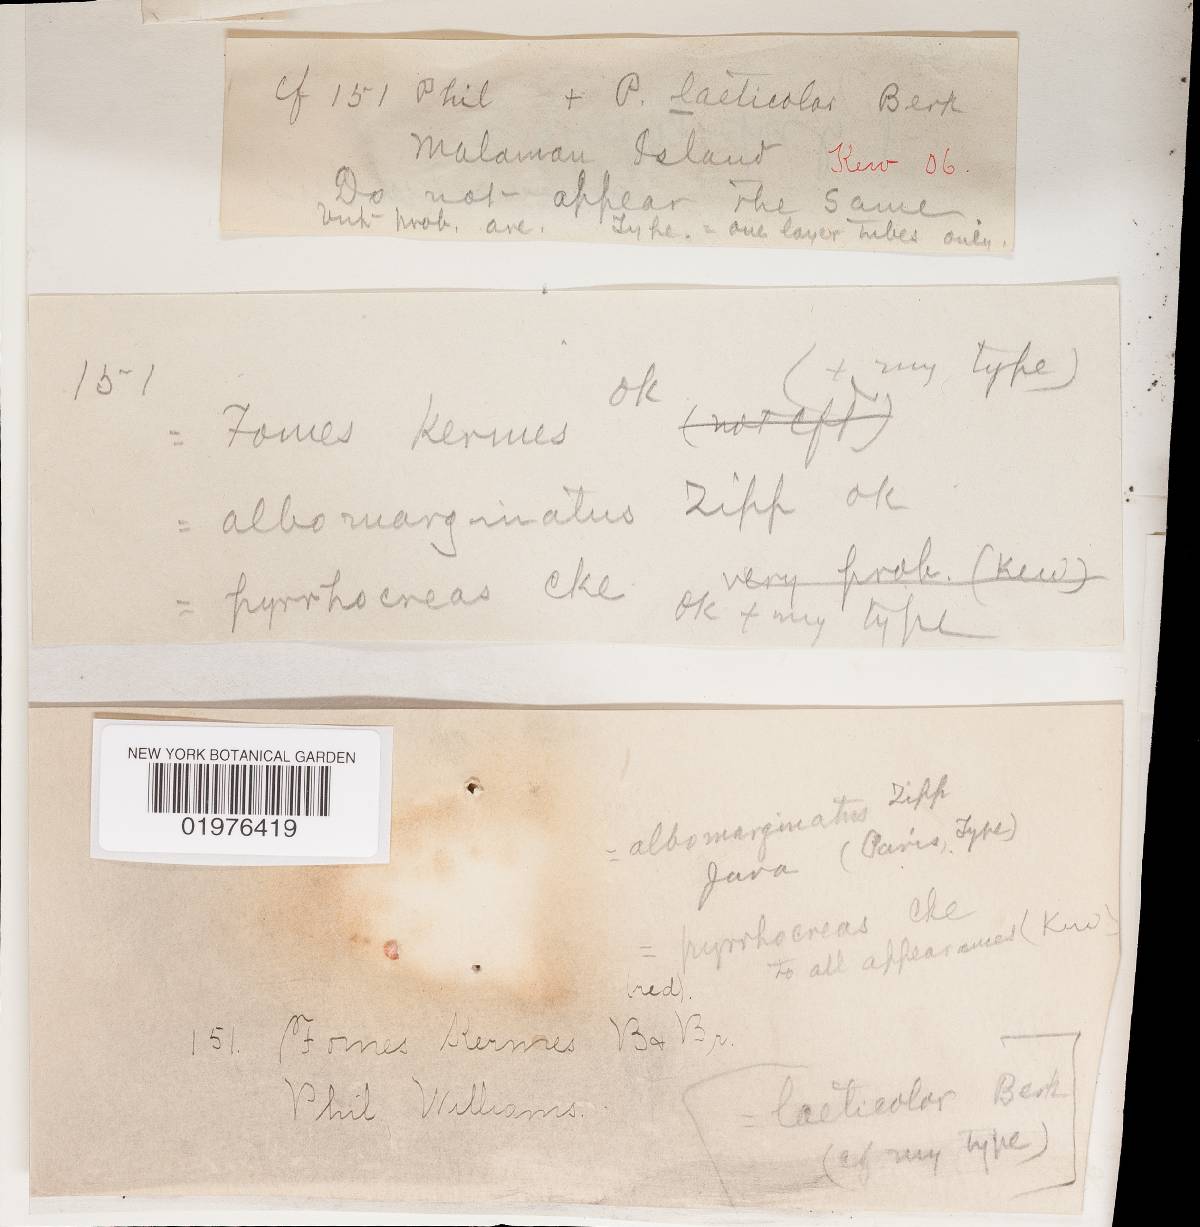 cf 151 Phil + P. laeticolor Berk
Malamau Island Kew 06.
Do not appear the same.
but prob. are. Type. = one layer tubes only.
151 ok (+ my type)
= Fomes Kermes (not cft)
= albomarginatus Zipp ok
= pyrrhocreas cke very prob. (Kew)
ok + my type
NEW YORK BOTANICAL GARDEN
01976419
= albomarginatus Zipp
Java (Paris, Type)
= pyrrhocreas cke
to all appearances (Kew)
(red).
151. Fomes Kermes B & Br.
Phil Williams.
= laeticolor Berk
(cf my type)